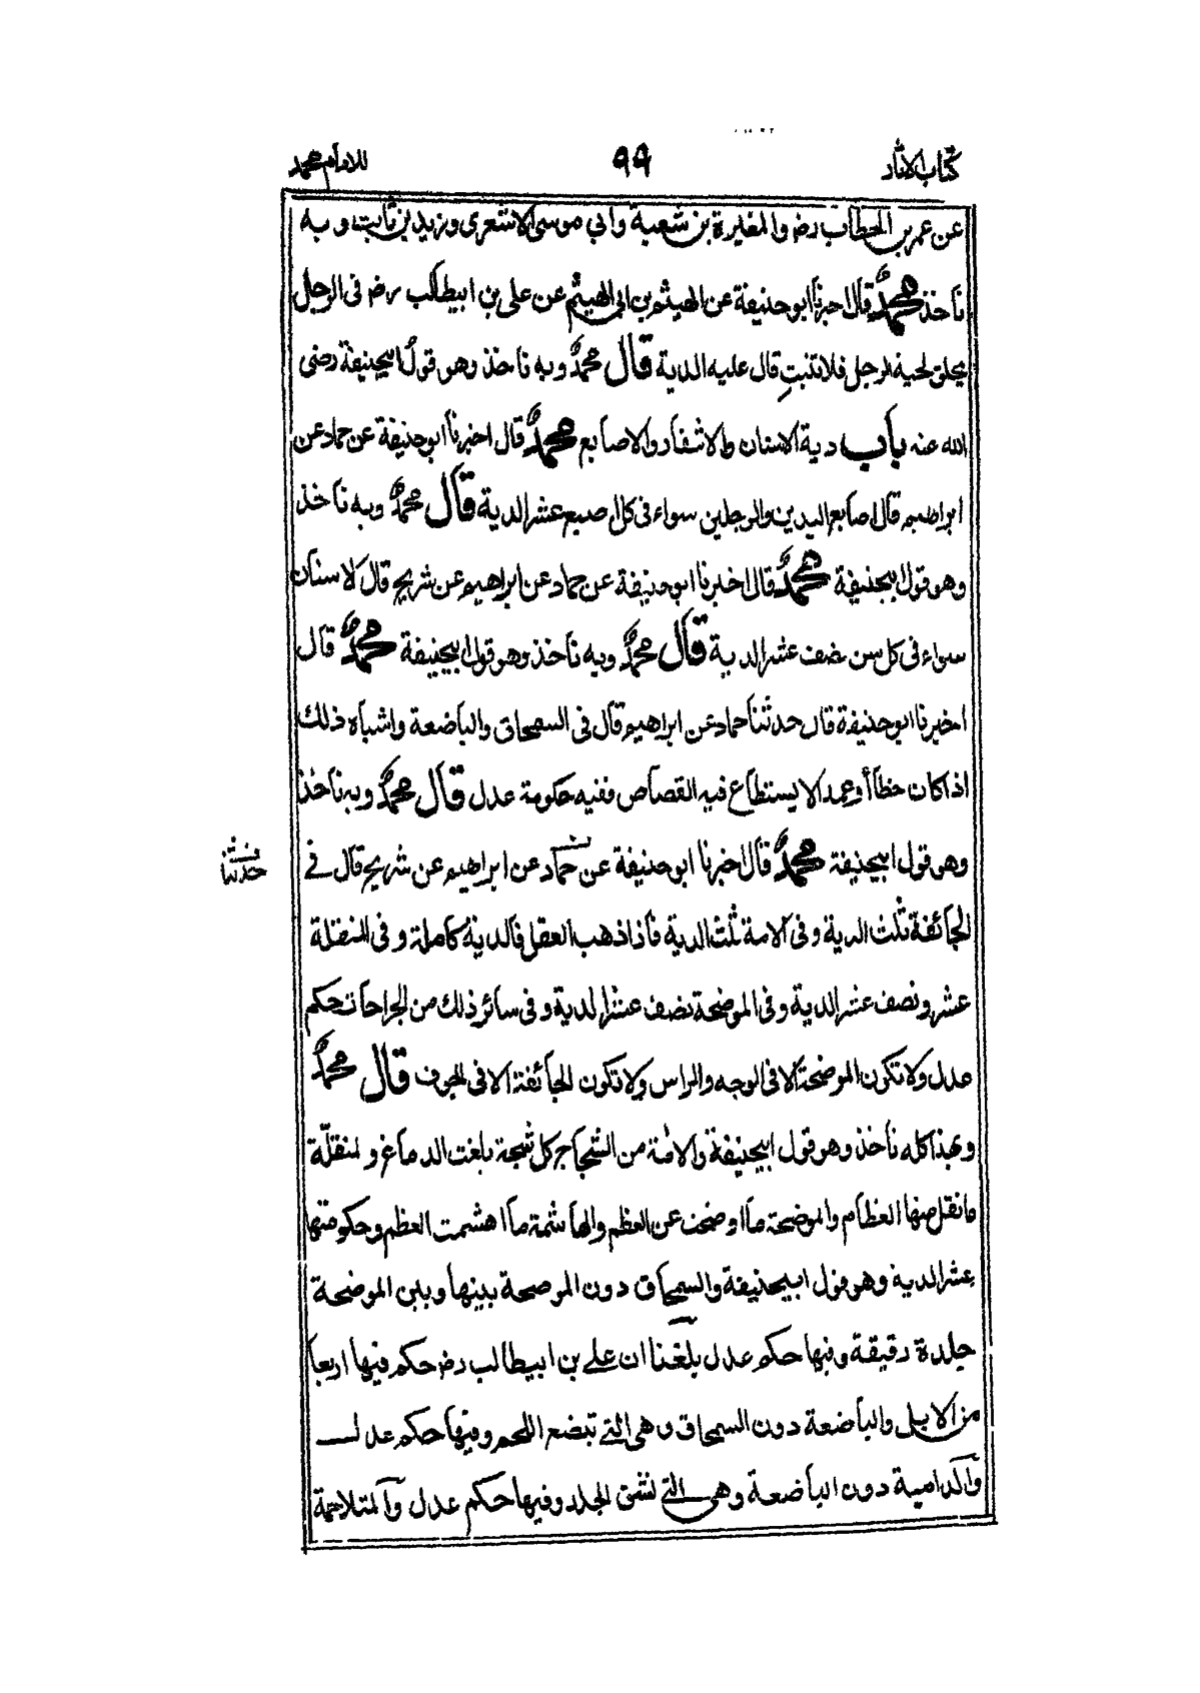 كتاب الاثار
٩٩
للامام محمد
عن عمر بن الخطاب رض والمغيرة بن شعبة وابي موسى الاشعرى وزيد بن ثابت وبه
ناخذ محمد قال اخبرنا ابو حنيفة عن الهيثم بن ابى الهيثم عن على بن ابيطالب رض فى الرجل
يحلق لحية الرجل فلا تنبت قال عليه الدية قال محمد وبه ناخذ وهو قول ابيحنيفة رضى
الله عنه باب دية الاسنان والاشفار والاصابع محمد قال اخبرنا ابو حنيفة عن حماد عن
ابراهيم قال اصابع اليدين والرجلين سواء فى كل اصبع عشر الدية قال محمد وبه ناخذ
وهو قول ابيحنيفة محمد قال اخبرنا ابو حنيفة عن حماد عن ابراهيم عن شريح قال الاسنان
سواء فى كل سن نصف عشر الدية قال محمد وبه ناخذ وهو قول ابيحنيفة محمد قال
اخبرنا ابو حنيفة قال حدثنا حماد عن ابراهيم قال فى السمحاق والباضعة واشباه ذلك
اذا كان خطأ أو عمدا لا يستطاع فيه القصاص ففيه حكومة عدل قال محمد وبه ناخذ
وهو قول ابيحنيفة محمد قال اخبرنا ابو حنيفة عن حماد عن ابراهيم عن شريح قال فے
حدثنا
الجائفة ثلث الدية وفى الامة ثلث الدية فاذا ذهب العقل فالدية كاملة وفى المنقلة
عشر ونصف عشر الدية وفى الموضحة نصف عشر الدية وفى سائر ذلك من الجراحات حكم
عدل ولا تكون الموضحة الا فى الوجه والراس ولا تكون الجائفة الا فى الجوف قال محمد
وبهذا كله ناخذ وهو قول ابيحنيفة والامة من الشجاج كل شجة بلغت الدماغ والمنقلة
ما نقل منها العظام والموضحة ما اوضحت عن العظم والهاشمة ما هشمت العظم وحكومتها
عشر الدية وهو قول ابيحنيفة والسمحاق دون الموضحة بينها وبين الموضحة
جلدة رقيقة وفيها حكم عدل بلغنا ان علے بن ابيطالب رض حكم فيها اربعا
من الابل والباضعة دون السمحاق وهى التے تبضع اللحم وفيها حكم عدل
والدامية دون الباضعة وهى التے تشق الجلد وفيها حكم عدل والمتلاحمة